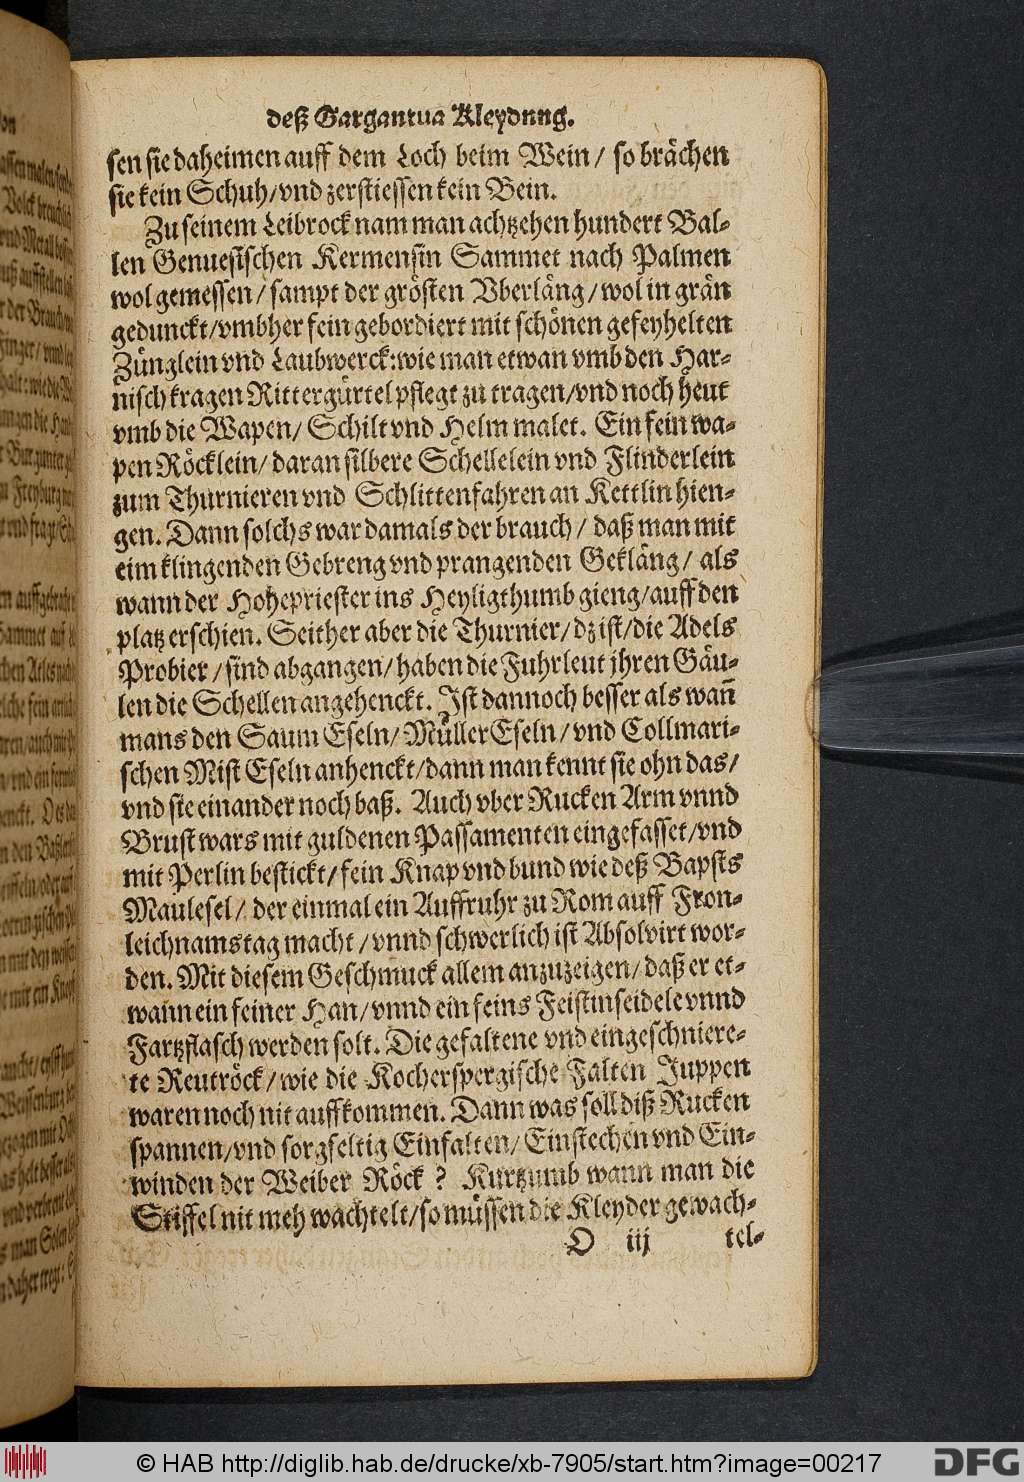 deß Gargantua Kleydung.
sen sie daheimen auff dem Loch beim Wein / so brächen
sie kein Schuh / vnd zerstiessen kein Bein.
Zu seinem Leibrock nam man achtzehen hundert Bal-
len Genuesischen Kermensin Sammet nach Palmen
wol gemessen / sampt der grösten Vberläng / wol in grän
gedunckt / vmbher fein gebordiert mit schönen gefeyhelten
Zünglein vnd Laubwerck: wie man etwan vmb den Har-
nischkragen Rittergürtel pflegt zu tragen / vnd noch heut
vmb die Wapen / Schilt vnd Helm malet. Ein fein wa-
pen Röcklein / daran silbere Schellelein vnd Flinderlein
zum Thurnieren vnd Schlittenfahren an Kettlin hien-
gen. Dann solchs war damals der brauch / daß man mit
eim klingenden Gebreng vnd prangenden Gekläng / als
wann der Hohepriester ins Heyligthumb gieng / auff den
platz erschien. Seither aber die Thurnier / dz ist / die Adels
Probier / sind abgangen / haben die Fuhrleut jhren Gäu-
len die Schellen angehenckt. Ist dannoch besser als wañ
mans den Saum Eseln / Müller Eseln / vnd Collmari-
schen Mist Eseln anhenckt / dann man kennt sie ohn das /
vnd sie einander noch baß. Auch vber Rucken Arm vnnd
Brust wars mit guldenen Passamenten eingefasset / vnd
mit Perlin bestickt / fein Knap vnd bund wie deß Bapsts
Maulesel / der einmal ein Auffruhr zu Rom auff Fron-
leichnamstag macht / vnnd schwerlich ist Absolvirt wor-
den. Mit diesem Geschmuck allem anzuzeigen / daß er et-
wann ein feiner Han / vnnd ein feins Feistinseidele vnnd
Fartzflasch werden solt. Die gefaltene vnd eingeschniere-
te Reutröck / wie die Kocherspergische Falten Juppen
waren noch nit auffkommen. Dann was soll diß Rucken
spannen / vnd sorgfeltig Einfalten / Einstechen vnd Ein-
winden der Weiber Röck ? Kurtzumb wann man die
Stiffel nit meh wachtelt / so müssen die Kleyder gewach-
O iij tel-
© HAB http://diglib.hab.de/drucke/xb-7905/start.htm?image=00217
DFG